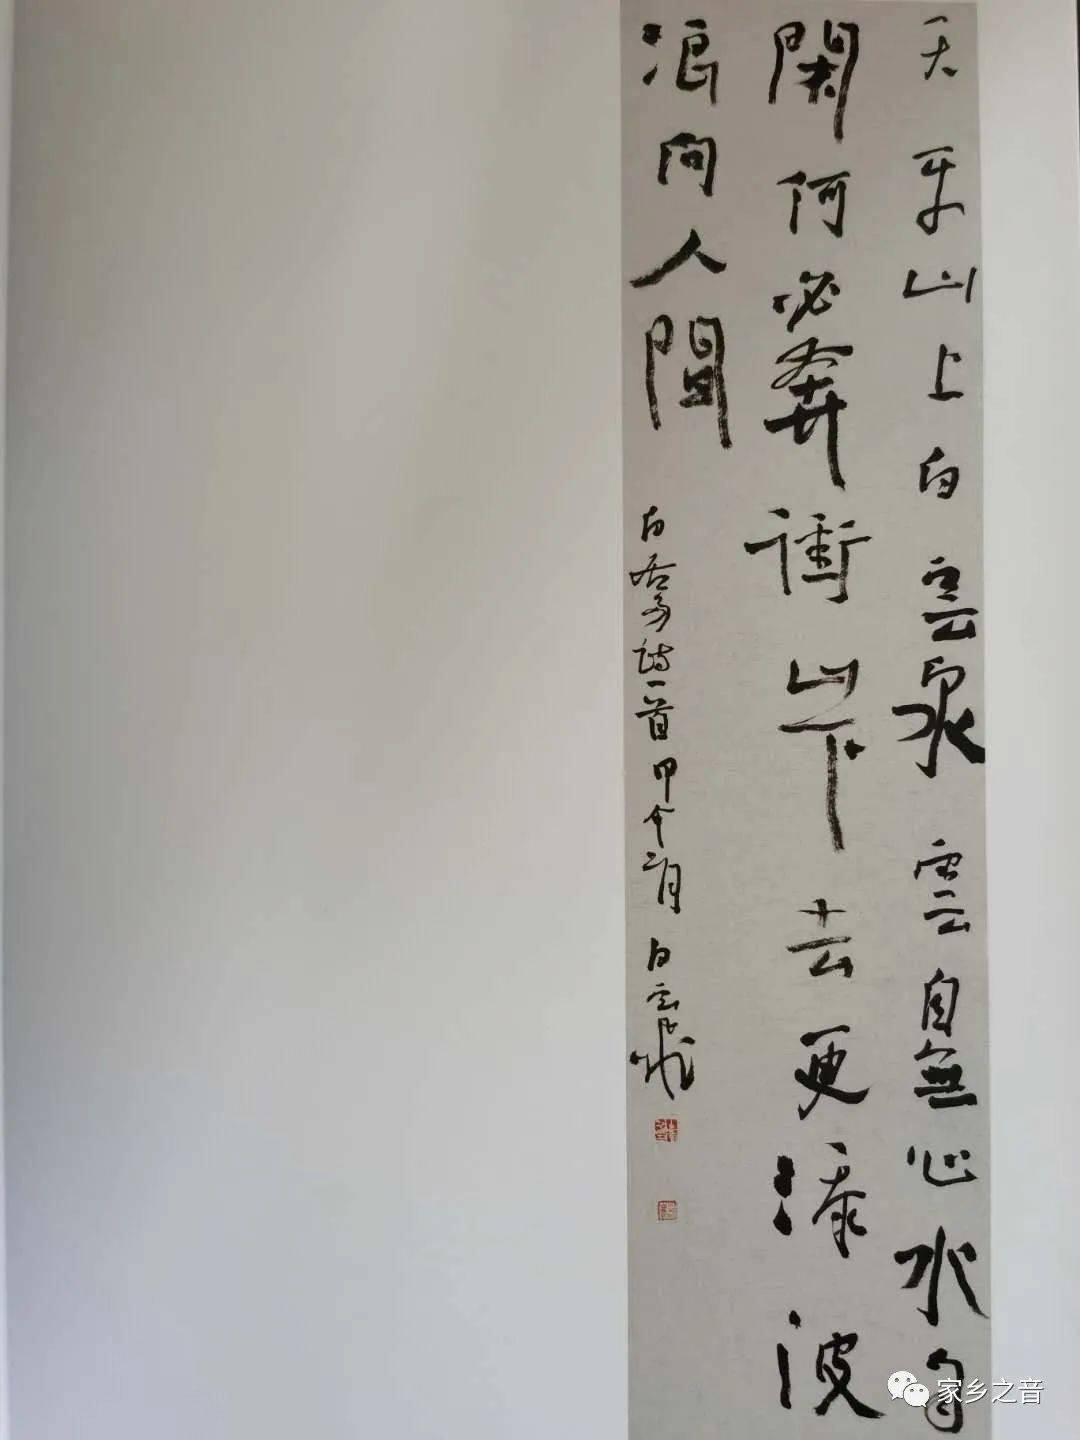 天平山上白雲泉雲自無心水自
閑何必奔衝山下去更添波
浪向人間
白居易詩一首甲午二月白云
家乡之音